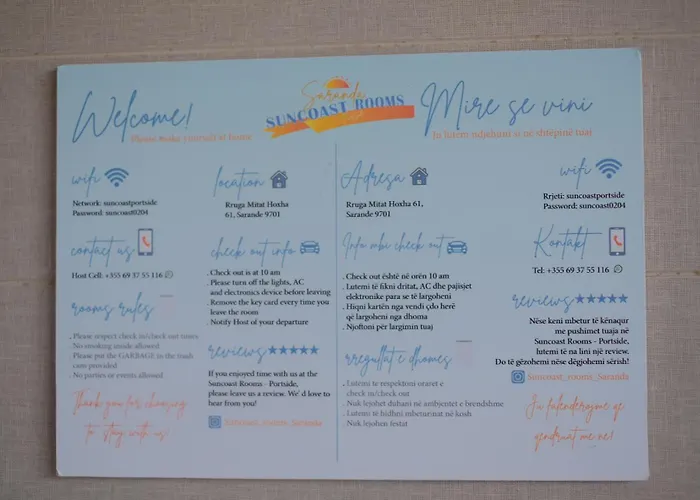 Welcome!
Please make yourself at home
Sarande
SUNCOAST ROOMS
Mire se vini
Ju lutem ndjehuni si ne shtëpinë tuaj
wifi
Network: suncoastportside
Password: suncoast0204
location
Rruga Mitat Hoxha
61, Sarande 9701
contact us
Host Cell: +355 69 37 55 116
check out info
. Check out is at 10 am
. Please turn off the lights, AC
and electronics device before leaving
. Remove the key card every time you
leave the room
. Notify Host of your departure
rooms rules
. Please respect check in/check out times
. No smoking inside allowed
. Please put the GARBAGE in the trash
cans provided
. No parties or events allowed
reviews
If you enjoyed time with us at the
Suncoast Rooms - Portside,
please leave us a review. We' d love to
hear from you!
Suncoast_rooms_Saranda
Thank you for choosing
to stay with us!
Adresa
Rruga Mitat Hoxha 61,
Sarande 9701
wifi
Rrjeti: suncoastportside
Password: suncoast0204
Info mbi check out
. Check out është në orën 10 am
. Lutemi të fikni dritat, AC dhe pajisjet
elektronike para se të largoheni
. Hiqni kartën nga vendi çdo herë
që largoheni nga dhoma
. Njoftoni për largimin tuaj
Kontakt
Tel: +355 69 37 55 116
rregullat e dhomes
. Lutemi të respektoni oraret e
check in/check out
. Nuk lejohet duhani në ambjentet e brendshme
. Lutemi të hidhni mbeturinat në kosh
. Nuk lejohen festat
reviews
Nëse keni mbetur të kënaqur
me pushimet tuaja në
Suncoast Rooms - Portside,
lutemi të na lini një review.
Do të gëzohemi nëse dëgjohemi sërish!
Suncoast_rooms_Saranda
Ju falenderojme qe
qendruat me ne!